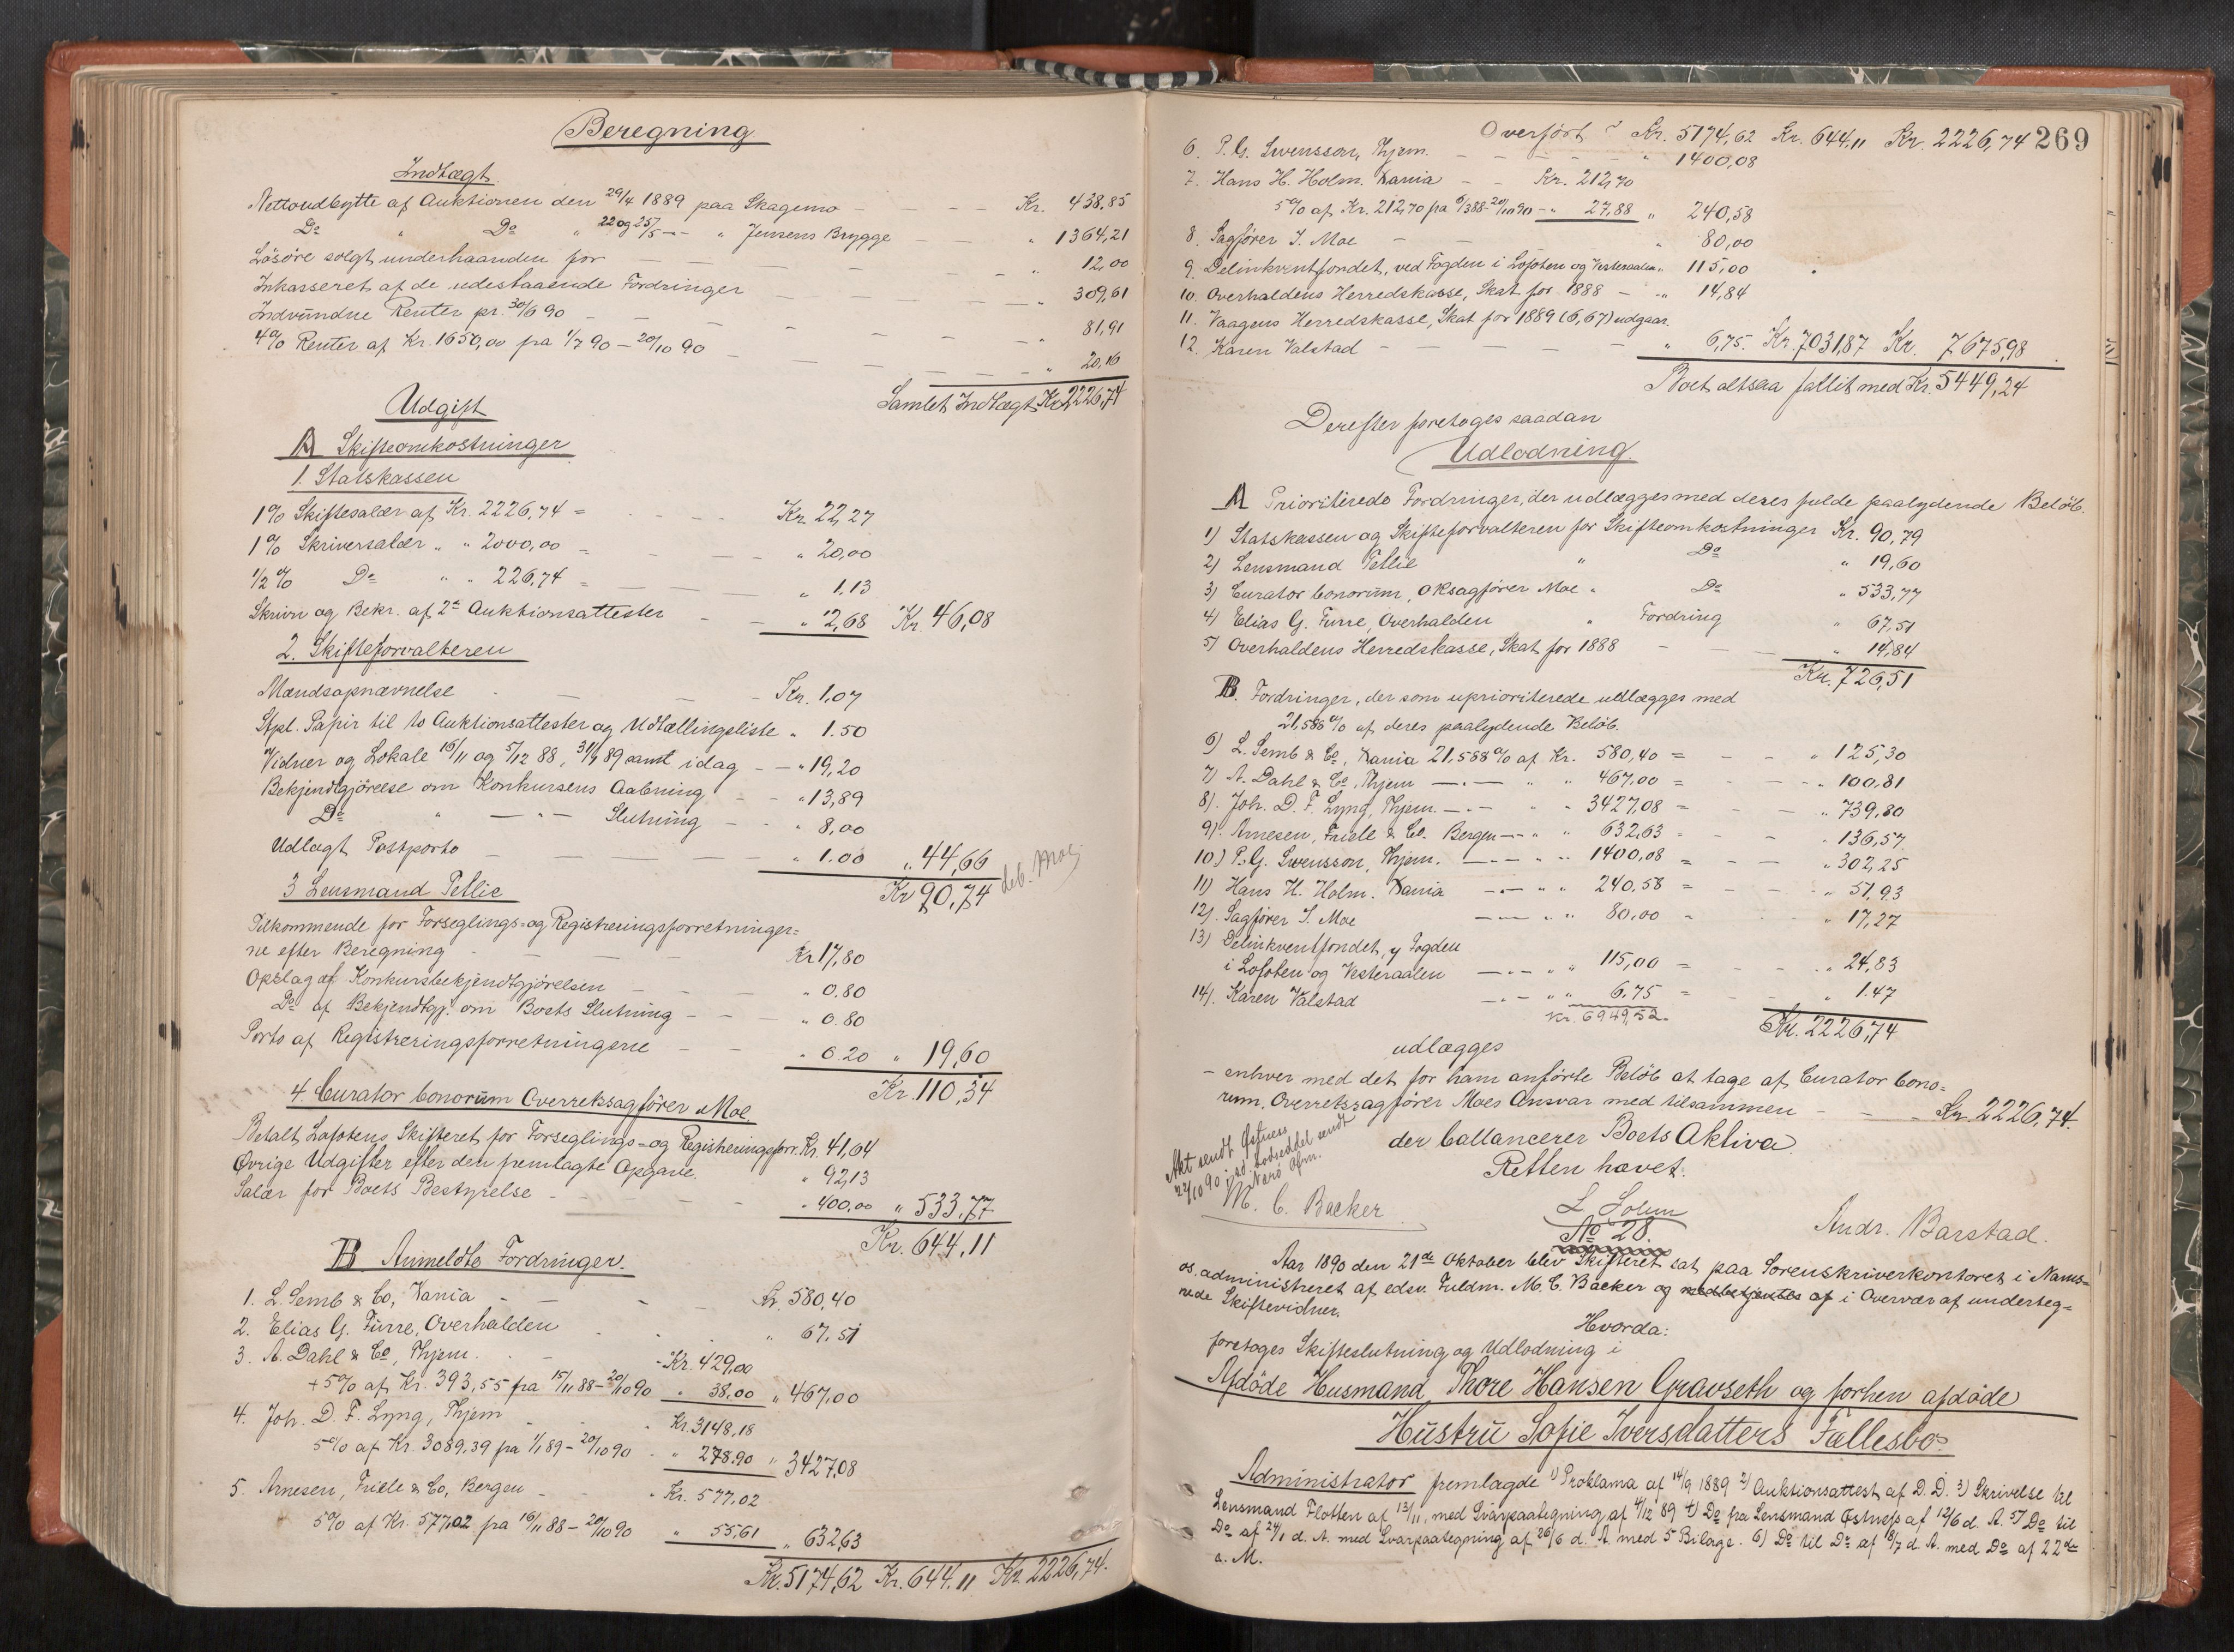 Beregning
Indtægt.
Nettoudbytte af Auktionen den 29/4 1889 paa Skagemo - - - Kr. 438,85
Do " Do " 22 og 25/5 - - " Jensens Brygge - - " 1364,21
Løsøre solgt underhaanden for - - - - " 12,00
Inkasseret af de udestaaende Fordringer - - - " 309,61
Indvundne Renter pr. 30/6 90 - - - - " 81,91
4% Renter af Kr. 1650,00 fra 1/7 90 - 20/10 90 - - - " 20,16
Samlet Indtægt Kr. 2226,74
Udgift
A Skifteomkostninger
1. Statskassen
1% Skiftesalær af Kr. 2226,74 = - - - Kr. 22,27
1% Skriversalær " " 2000,00 = - - - " 20,00
1/2% Do " " 226,74 = - - " 1,13
Skrivn og Bekr. af 2de Auktionsattester - - " 2,68 Kr. 46,08
2. Skifteforvalteren
Mandsopnævnelse - - - Kr. 1,07
Stpl. Papir til to Auktionsattester og Udtællingsliste " 1.50
Vidner og Lokale 16/11 og 5/12 88, 31/1 89 samt idag - - " 19,20
Bekjendtgjörelse om Konkursens Aabning - - " 13,89
Do " - " - Slutning - - " 8,00
Udlagt Postporto - - - - " 1.00 " 44,66
Kr 90,74 deb. Moe
3 Lensmand Petlie
Tilkommende for Forseglings- og Registreringsforretninger=
ne efter Beregning - - - Kr 17,80
Opslag af Konkursbekjendtgjørelsen - - - " 0.80
Do af Bekjendtgj. om Boets Slutning - - - " 0.80
Porto af Registreringsforretningerne - - " 0.20 " 19,60
Kr. 110,34
4. Curator bonorum Overretssagfører Moe.
Betalt Lofotens Skifteret for Forseglings- og Registreringsforr. Kr. 41,64
Øvrige Udgifter efter den fremlagte Opgave. " 92,13
Salær for Boets Bestyrelse - - - " 400,00 " 533,77
Kr. 644,11
B Anmeldte Fordringer.
1. L. Semb & Co, Xania - - - Kr. 580,40
2. Elias G. Furre, Overhalden - - - " 67,51
3. A. Dahl & Co, Thjem. - - - Kr. 429,00
+ 5% af Kr. 393,55 fra 15/11 88 - 20/10 90 " 38,00 " 467,00
4. Joh. D. F. Lyng, Thjem - - - Kr. 3148,18
5% af Kr 3089,39 fra 1/1 89 - 20/10 90 - " 278.90 " 3427,08
5. Arnesen, Friele & Co, Bergen - - - Kr. 577,02
5% af Kr. 577,02 fra 16/11 88 - 20/10 90 " 55,61 " 632,63
Kr. 5174,62 Kr. 644.11 Kr. 2226,74.
269
Overført Kr. 5174,62 Kr. 644,11 Kr. 2226,74
6. P. G. Swensson, Thjem. - - - - " 1400,08
7. Hans H. Holm. Xania - - Kr. 212,70
5% af Kr. 212,70 fra 6/3 88 - 20/10 90 - " 27,88 " 240,58
8. Sagfører I. Moe - - " 80,00
9. Delinkventfondet, ved Fogden i Lofoten og Vesteraalen " 115,00
10. Overhaldens Herredskasse, Skat for 1888 - " 14,84
11. Vaagens Herredskasse, Skat for 1889 (6,67) udgaar.
12. Karen Valstad - - - - " 6,75. Kr. 7031,87 Kr. 7675,98
Boet altsaa fallit med Kr. 5449,24
Derefter foretoges saadan
Udlodning.
A Prioriterede Fordringer, der udlægges med deres fulde paalydende Beløb.
1) Statskassen og Skifteforvalteren for Skifteomkostninger Kr. 90,79
2) Lensmand Petlie " Do " 19,60
3) Curator bonorum, ORsagfører Moe " Do " 533,77
4) Elias G. Furre, Overhalden " Fordring " 67,51
5) Overhaldens Herredskasse, Skat for 1888 - - - " 14,84
Kr. 726,51
B. Fordringer, der som uprioriterede udlægges med
21,588% af deres paalydende Beløb.
6) L. Semb & Co, Xania 21,588% af Kr. 580,40 = - - " 125,30
7) A. Dahl & Co, Thjem - " - " " 467,00 = - - " 100,81
8). Joh. D. F. Lyng, Thjem. - " - " " 3427,08 = - - " 739,80
9). Arnesen, Friele & Co. Bergen - " - " " 632,63 = - - " 136,57
10.) P. G. Swensson, Thjem. - " - " " 1400,08 = - - " 302,25
11) Hans H. Holm. Xania - " - " " 240,58 = - - " 51,93
12). Sagfører I. Moe - " - " " 80,00 = - - " 17,27
13) Delinkventfondet, v Fogden
i Lofoten og Vesteraalen - " - " " 115,00 = - - " 24,83
14). Karen Valstad - " - " " 6,75 = - - " 1.47
Kr. 6949,52. Kr. 2226,74
udlægges
- enhver med det for ham anførte Beløb at tage af Curator bono=
rum, Overretssagfører Moes Ansvar med tilsammen - - - Kr. 2226,74.
der ballancerer Boets Aktiva.
Retten hævet.
Akt sendt Østness
22/10 90 Lodseddel sendt
Nærø
M. C. Backer L Solum Andr. Barstad.
No 28.
Aar 1890 den 21de Oktober blev Skifteret sat paa Sorenskriverkontoret i Nams=
os, administreret af edsv. Fuldm. M. C. Backer og medbetjentes af i Overvær af underteg=
nede Skiftevidner.
Hvorda:
foretoges Skifteslutning og Udlodning i
Afdøde Husmand Thore Hansen Gravseth og forhen afdøde
Hustru Sofie Iversdatters Fællesbo
Administrator fremlagde 1) Proklama af 14/9 1889 2) Auktionsattest af D. D. 3) Skrivelse til
Lensmand Flotten af 13/11, med Svarpaategning af 4/12 89 4) Do fra Lensmand Østness af 12/6 d. A. 5) Do til
Do af 24/1 d. A. med Svarpaategning af 26/6 d. A med 5 Bilage. 6) Do til Do af 8/7 d. A. med Do af 22de
s. M.